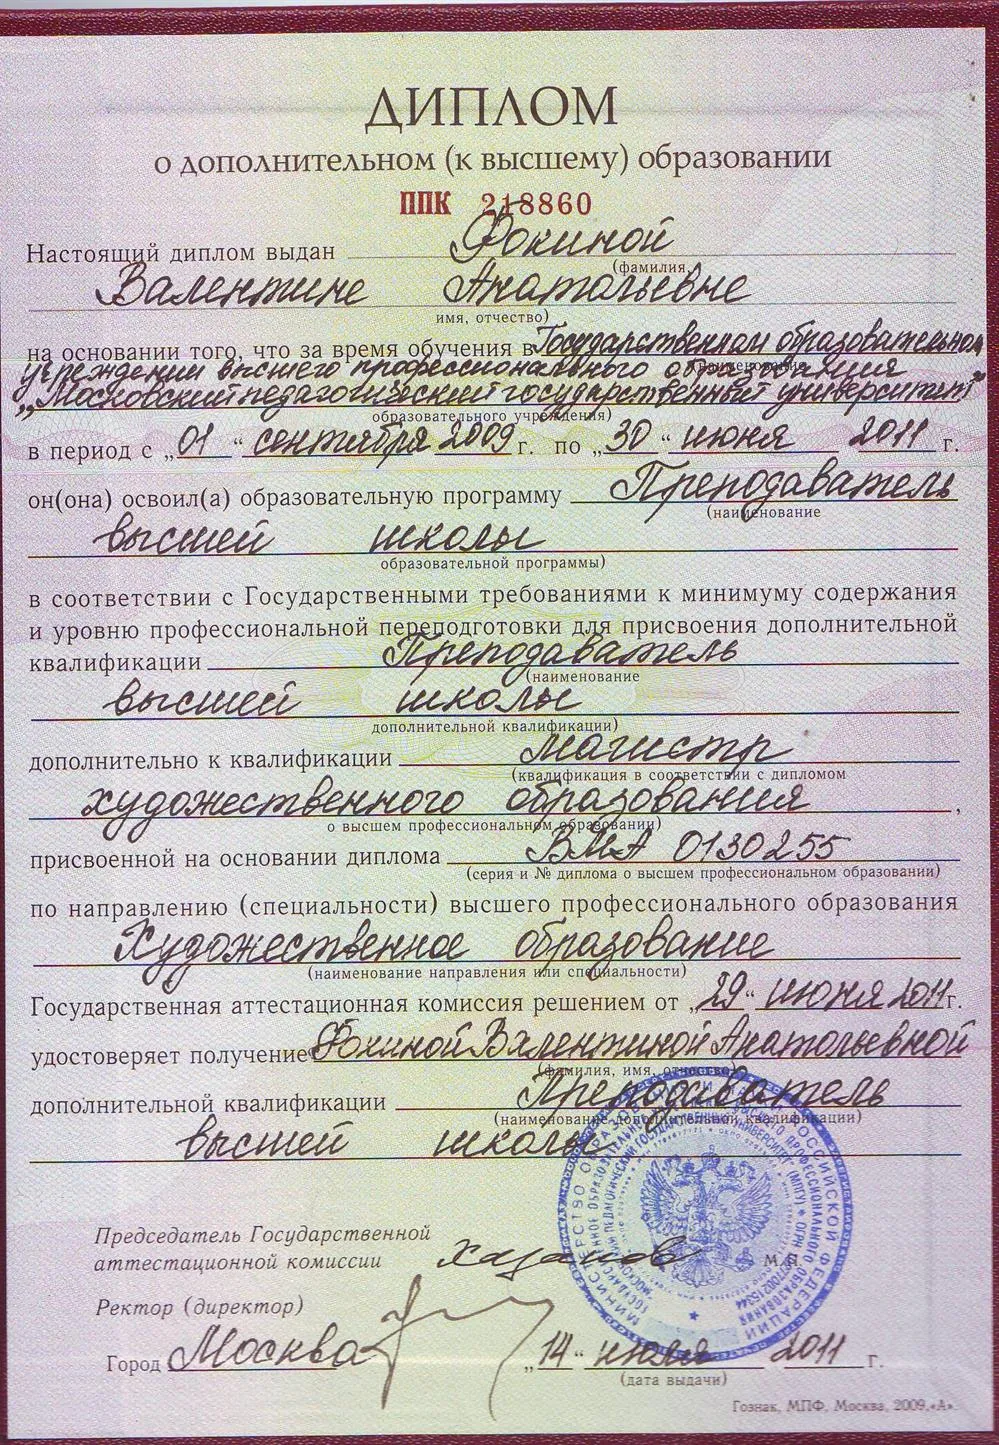 ДИПЛОМ
о дополнительном (к высшему) образовании
ППК 218860
Настоящий диплом выдан Фокиной
(фамилия,
Валентине Анатольевне
имя, отчество)
на основании того, что за время обучения в Государственном образовательном
(наименование
учреждении высшего профессионального образования
„Московский педагогический государственный университет"
образовательного учреждения)
в период с „01" сентября 2009 г. по „30" июня 2011 г.
он(она) освоил(а) образовательную программу Преподаватель
(наименование
высшей школы
образовательной программы)
в соответствии с Государственными требованиями к минимуму содержания
и уровню профессиональной переподготовки для присвоения дополнительной
квалификации Преподаватель
(наименование
высшей школы
дополнительной квалификации)
дополнительно к квалификации магистр
(квалификация в соответствии с дипломом
художественного образования ,
о высшем профессиональном образовании)
присвоенной на основании диплома ВМА 0130255
(серия и № диплома о высшем профессиональном образовании)
по направлению (специальности) высшего профессионального образования
Художественное образование
(наименование направления или специальности)
Государственная аттестационная комиссия решением от „29" июня 2011г.
удостоверяет получение Фокиной Валентиной Анатольевной
(фамилия, имя, отчество)
дополнительной квалификации Преподаватель
(наименование дополнительной квалификации)
высшей школы
Председатель Государственной
аттестационной комиссии Хазанов М.П.
Ректор (директор)
Город Москва „14" июля 2011 г.
(дата выдачи)
Гознак, МПФ, Москва, 2009,«А».